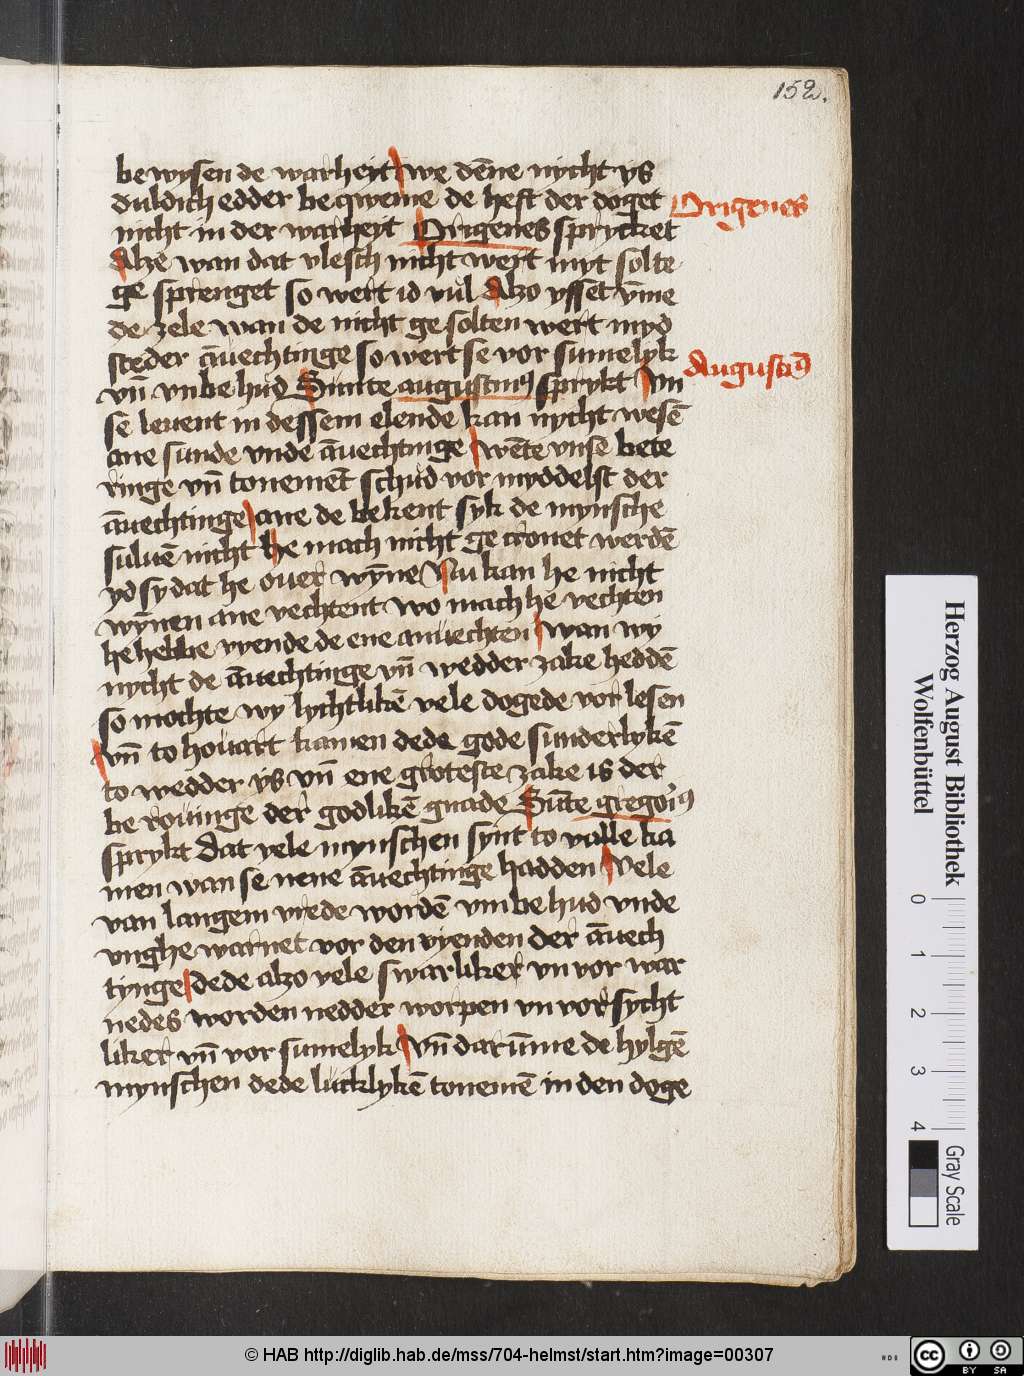 152.
be wysen de warheyt we dēne nycht ys
duldich edder beqweme de heft der doget
nicht in der warheyt Origenes sprycket
Origenes
Alze wan dat vlesch nicht wert myt solte
ge sprenget so wert id vul Alzo ysset v̄me
de zele wan de nicht ge solten wert myd
steder āvechtinge so wert se vor sumelyk
vn̄ vnbe hud Sunte augustinꝰ sprykt Vn
Augustinꝰ
se levent in dessem elende kan nycht wesē
ane sunde vnde āvechtinge wēte vnse bete
ringe vn̄ tonemēt schud vor myddelst der
āvechtinge ane de bekent syk de mynsche
suluē nicht he mach nicht ge cronet werdē
yd sy dat he ouer wȳne Nu kan he nicht
wȳnen ane vechtent wo mach he vechten
he hebbe vyende de ene anvechten wan wy
nycht de āvechtinge vn̄ wedder zake heddē
so mochte wy lychtlikē vele dogede vor lesen
vn̄ to houart kamen dede gode sunderlykē
to wedder ys vn̄ ene groteste zake is der
be rouinge der godlikē gnade Sūte gregoriꝰ
sprykt dat vele mynschen synt to valle ka
men wan se nene āvechtinge hadden Vele
van langem vrede wordē vmbe hud vnde
vnghe warnet vor den vyenden der āvech
tynge dede alzo vele swarliker vn vor war
nedes worden nedder worpen vn vorsycht
liker vn̄ vor sumelyk Vn̄ darūme de hylgē
mynschen dede lucklykē tonemē in den doge
Herzog August Bibliothek
Wolfenbüttel
0 1 2 3 4
Gray Scale
© HAB http://diglib.hab.de/mss/704-helmst/start.htm?image=00307
CC BY SA